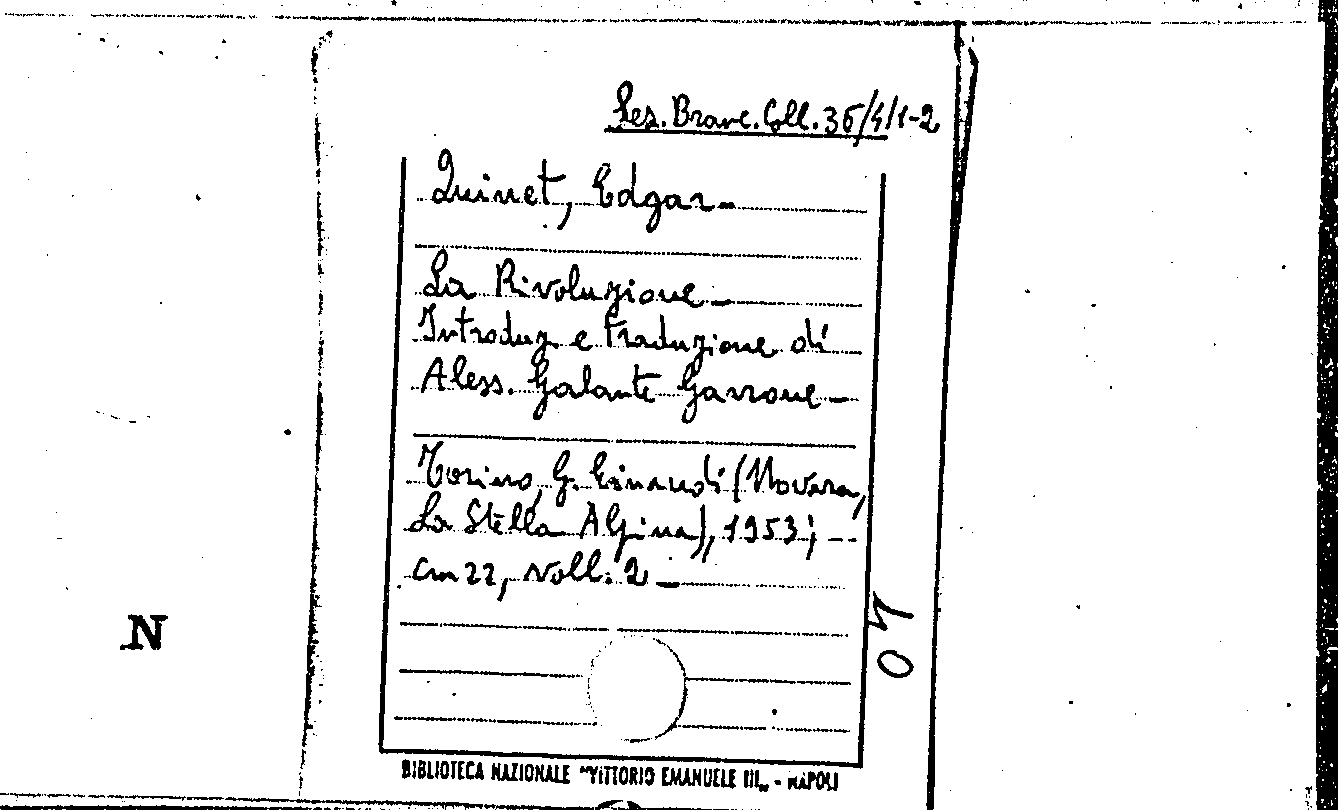 Sez. Branc. Coll. 36/4/1-2
Quinet, Edgar
La Rivoluzione
Introduz. e traduzione di
Aless. Galante Garrone
Torino, G. Einaudi (Novara,
La Stella Alpina), 1953;
cm 22, voll. 2
N
BIBLIOTECA NAZIONALE "VITTORIO EMANUELE III„ - NAPOLI